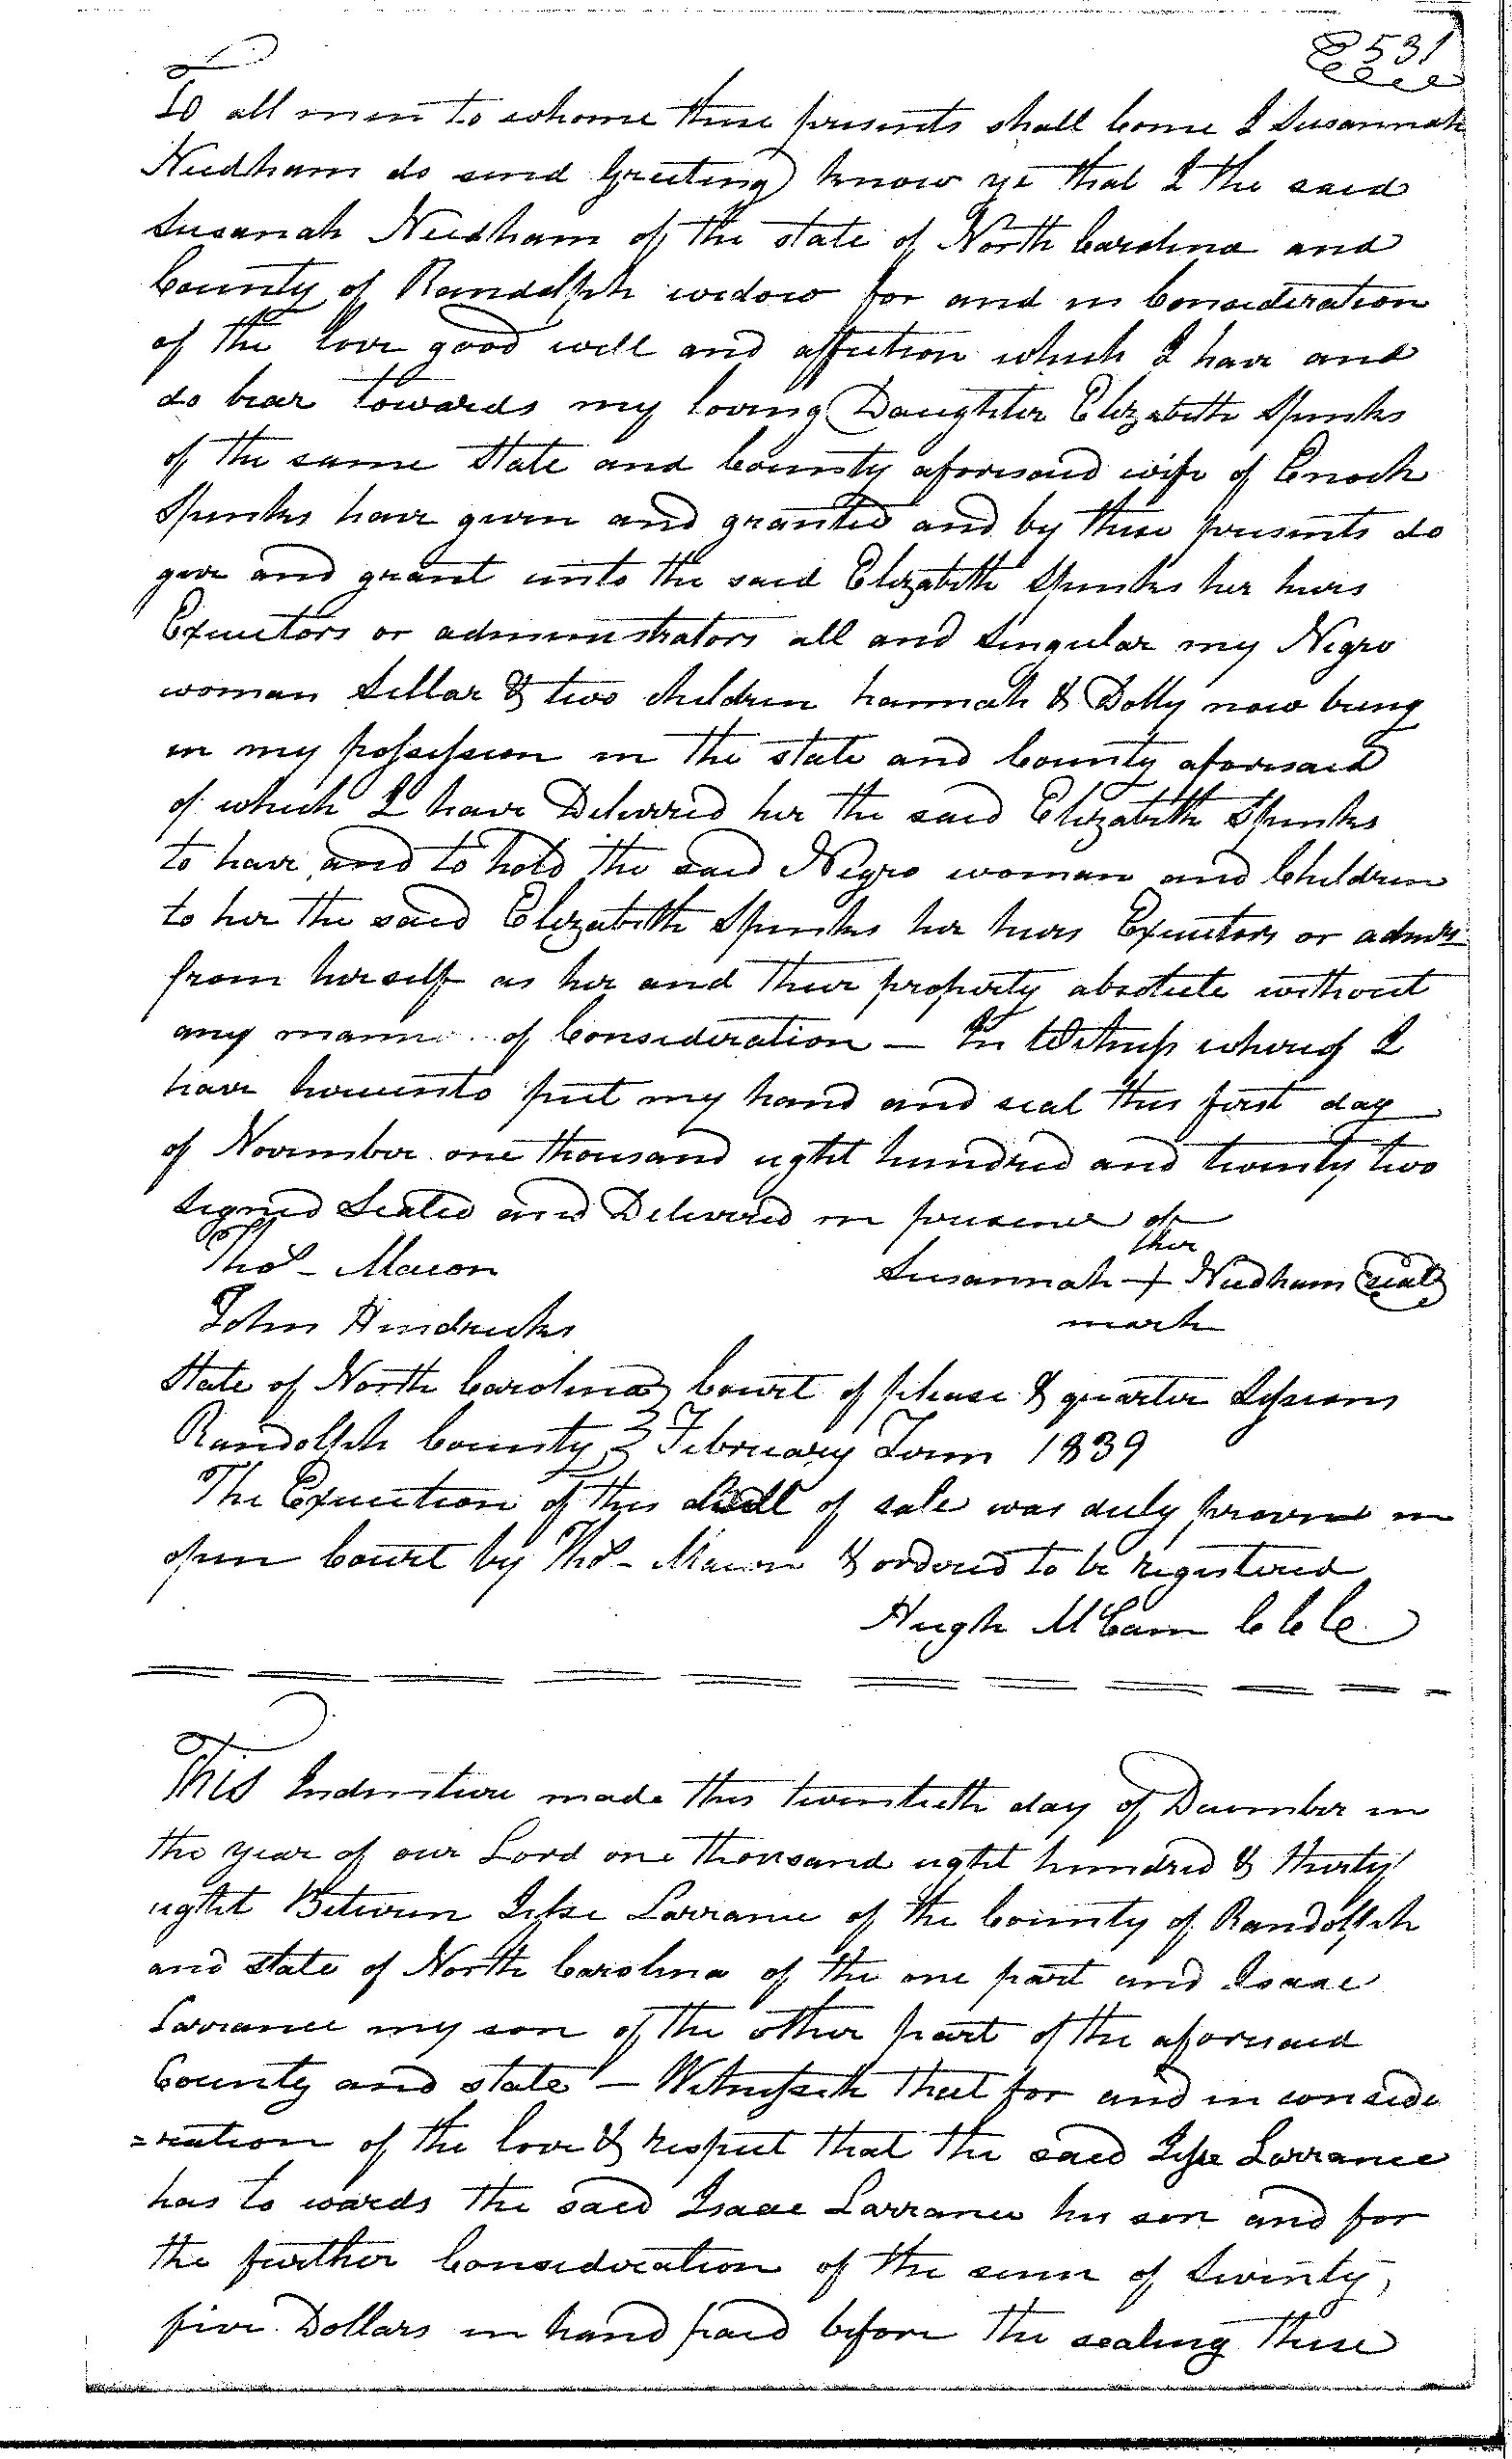 531
To all men to whome these presents shall Come I Susannah
Needham do send Greeting know ye that I the said
Susanah Needham of the state of North Carolina and
County of Randolph widow for and in Consideration
of the love good will and affection which I have and
do bear towards my loving Daughter Elizabeth Spinks
of the same State and County aforesaid wife of Enoch
Spinks have given and granted and by these presents do
give and grant unto the said Elizabeth Spinks her heirs
Executors or administrators all and Singular my Negro
woman Sillar & two children hannah & Dolly now being
in my possession in the state and County aforesaid
of which I have Delivered her the said Elizabeth Spinks
to have and to hold the said Negro woman and Children
to her the said Elizabeth Spinks her heirs Executors or admrs
from herself as her and their property absolute without
any manner of Consideration — In Witness whereof I
have hereunto put my hand and seal this first day
of November one thousand eight hundred and twenty two
Signed Sealed and Delivered in presence of
Thos - Macon
her
Susannah + Needham seal
John Hendricks
mark
State of North Carolina } Court of please & quarter Sessions
Randolph County } February Term 1839
The Execution of this Bill of sale was duly proven in
open Court by Thos - Macon & ordered to be registered
Hugh McCain C C C
This Indenture made this twentieth day of December in
the year of our Lord one thousand eight hundred & thirty
eight Between Jesse Larrance of the County of Randolph
and state of North Carolina of the one part and Isaac
Larrance my son of the other part of the aforesaid
County and state — Witnesseth that for and in conside
=ration of the love & respect that the said Jesse Larrance
has to wards the said Isaac Larrance his son and for
the further Consideration of the sum of Twenty,
five Dollars in hand paid before the sealing these